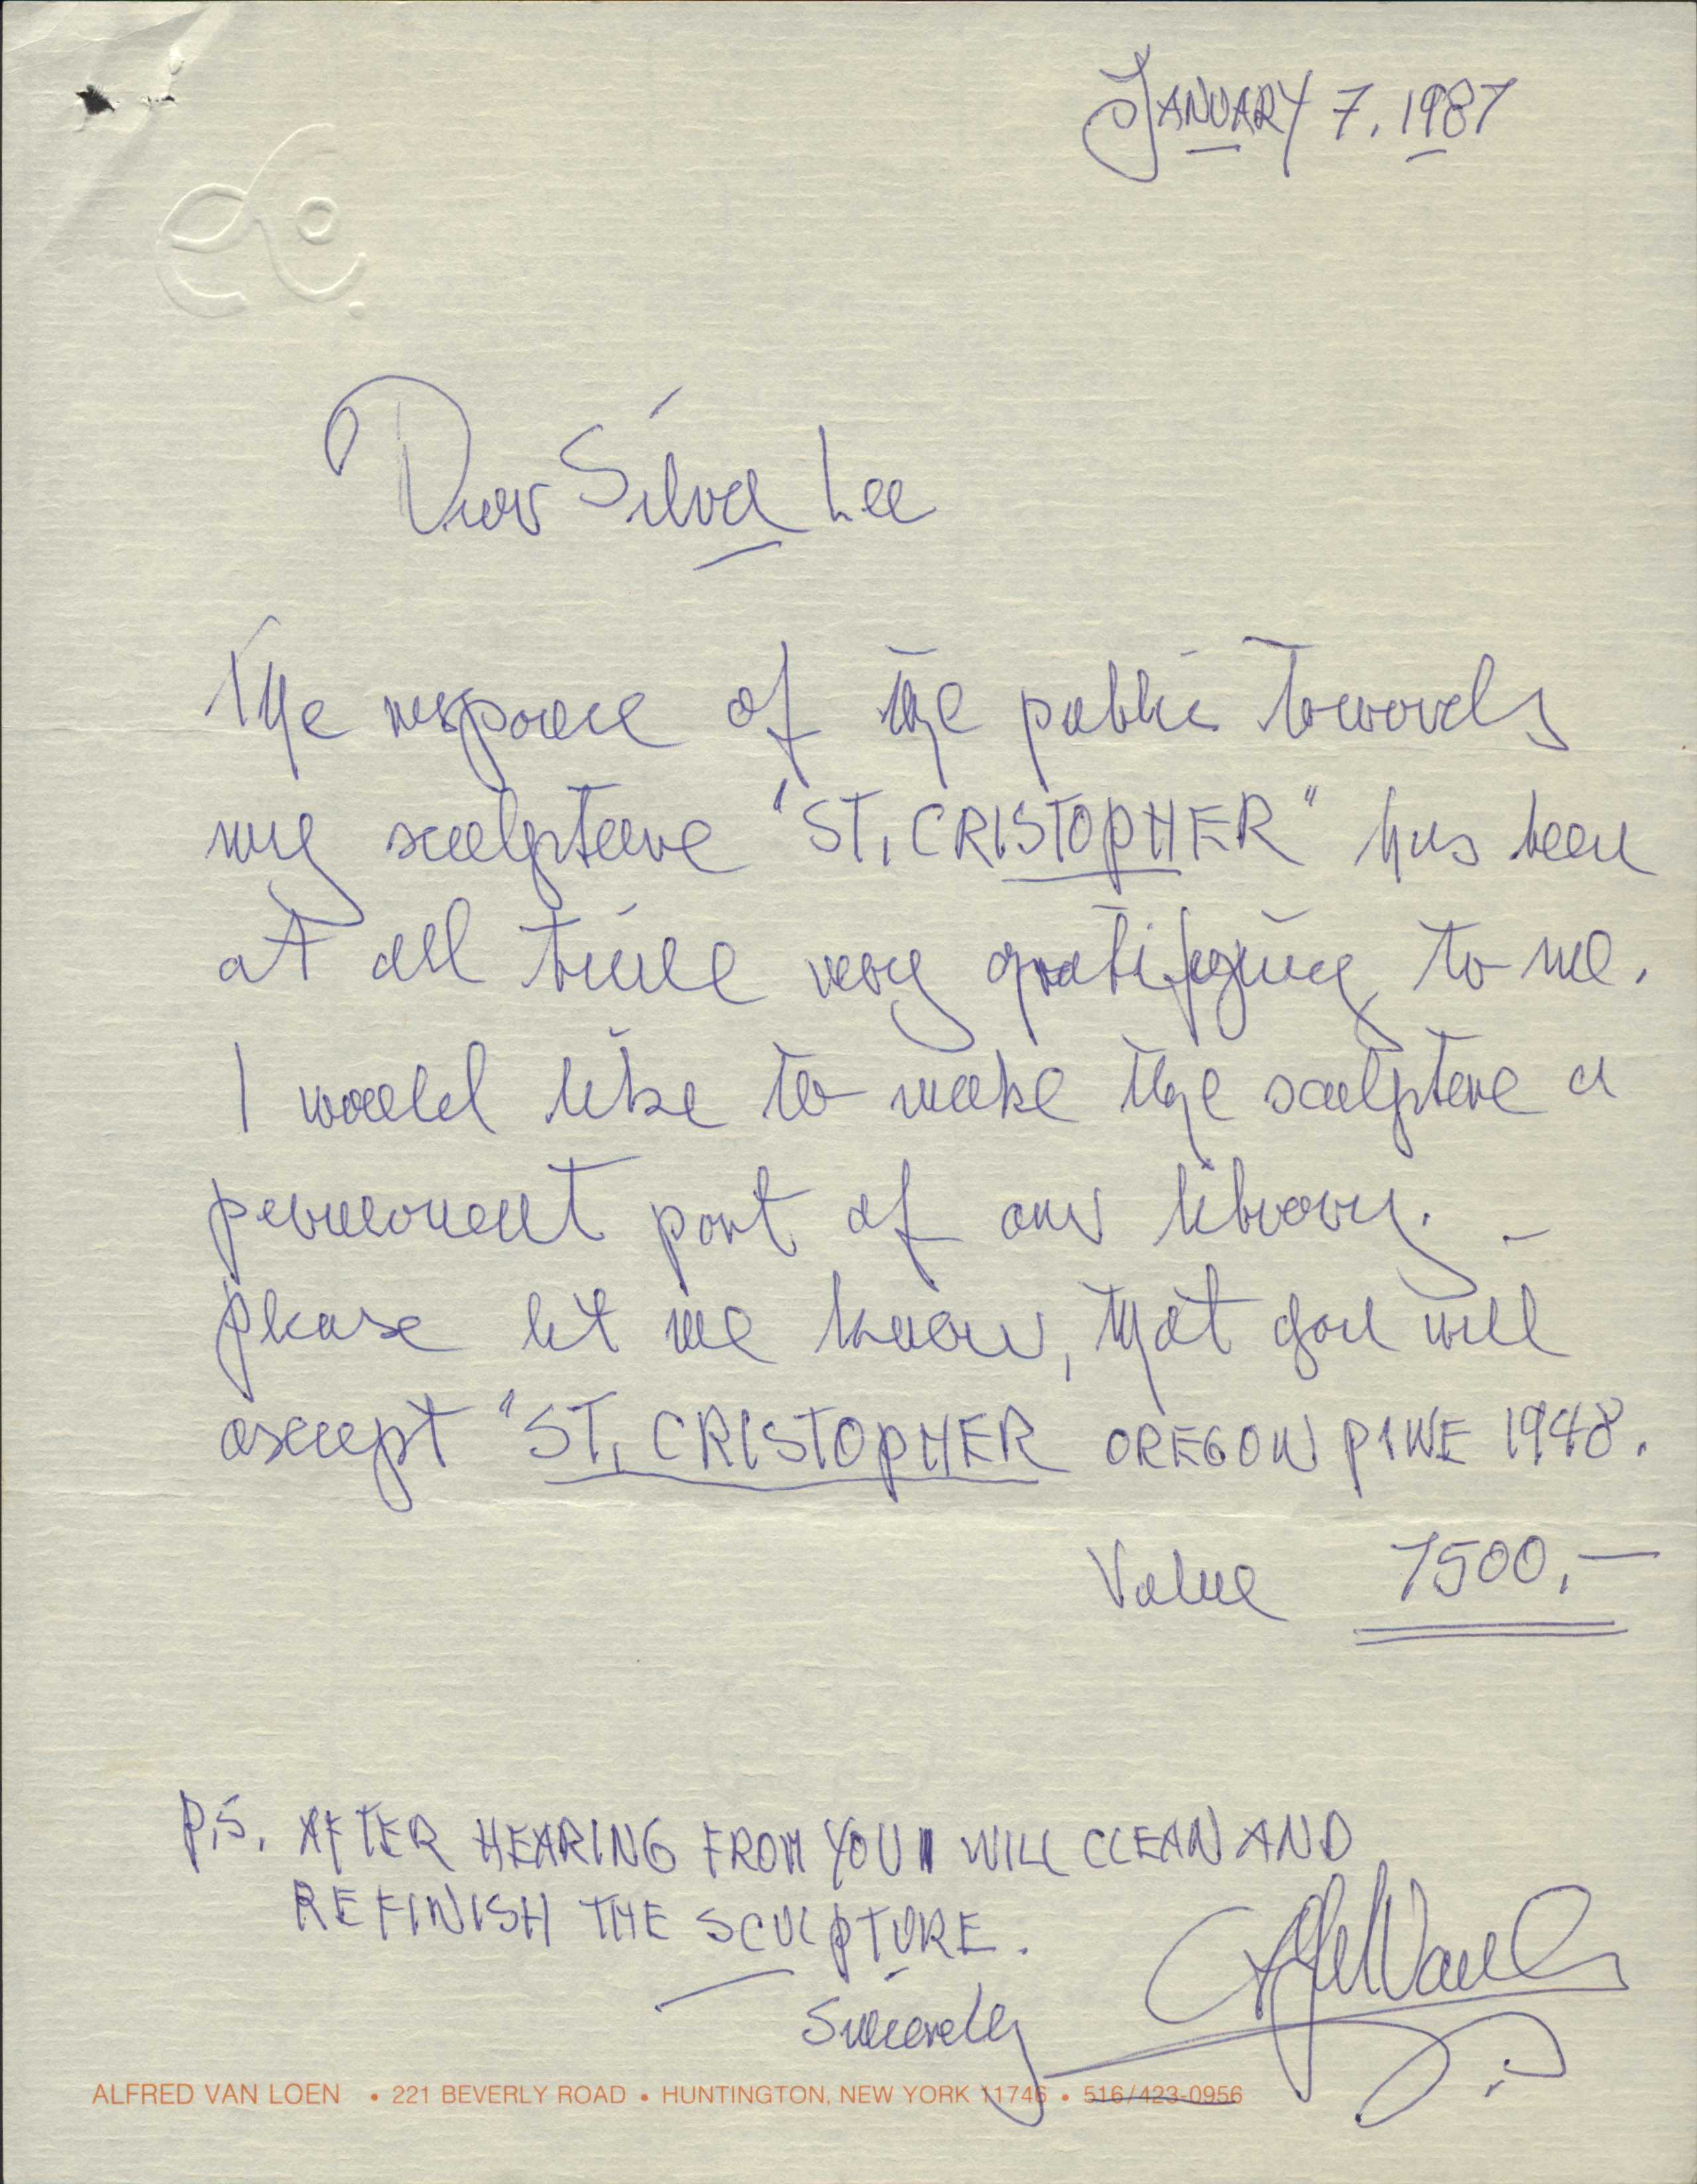 JANUARY 7. 1987
Dear Silva Lee
The responce of the public towards
my sculpture "ST. CRISTOPHER" has been
at all time very gratifying to me.
I would like to make the sculpture a
permanent part of our library.
please let me know, that you will
ascept "ST. CRISTOPHER OREGON PINE 1948.
Value 7500.—
P.S. AFTER HEARING FROM YOU WILL CLEAN AND
REFINISH THE SCULPTURE.
Sincerely
ALFRED VAN LOEN • 221 BEVERLY ROAD • HUNTINGTON, NEW YORK 11746 • 516/423-0956